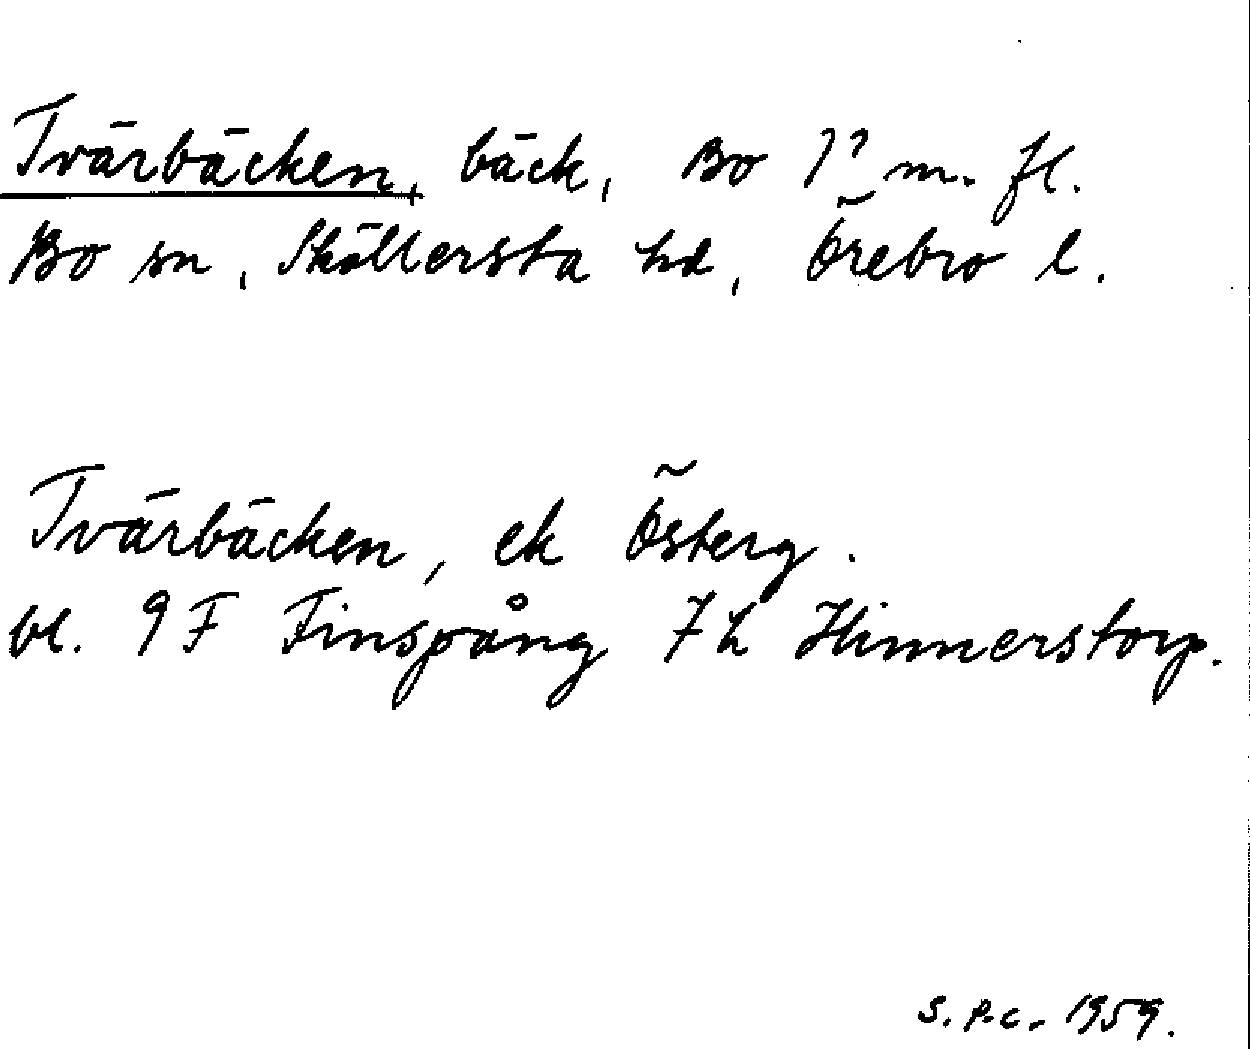 Tvärbäcken, bäck, Bo 1? m. fl.
Bo sn, Sköllersta hd, Örebro l.
Tvärbäcken, ek Österg.
bl. 9F Finspång 7h Hinnerstorp.
S.P.C. 1959.